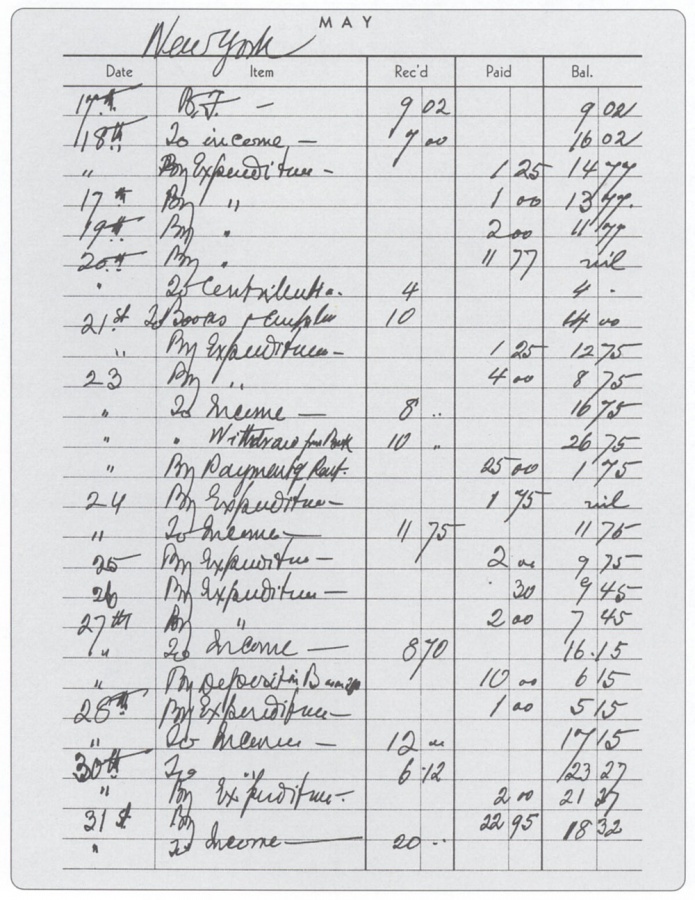 MAY
New York
Date Item Rec'd Paid Bal.
17th B.F. — 9 02 9 02
18th To income, — 7 00 16 02
" By Expenditure - 1 25 14 77
17th By " 1 00 13 77
19th By " 2 00 11 77
20th By " 11 77 nil
" To Contribution. 4 4 .
21st To Books 10 14 00
" By Expenditure — 1 25 12 75
23 By " 4 00 8 75
" To Income — 8 .. 16 75
" " Withdrawn from Bank 10 " 26 75
" By Payment of Rent. 25 00 1 75
24 By Expenditure — 1 75 nil
" To Income — 11 75 11 75
25 By Expenditure — 2 00 9 75
26 By Expenditure — . 30 9 45
27th By " 2 00 7 45
" To Income — 8 70 16.15
" By Deposit in 10 00 6 15
28th By Expenditure — 1 00 5 15
" To Income — 12 00 17 15
30th To " 6.12 23 27
" By Expenditure. 2 00 21 27
31st By 22 95 18 32
" To Income — 20 ..